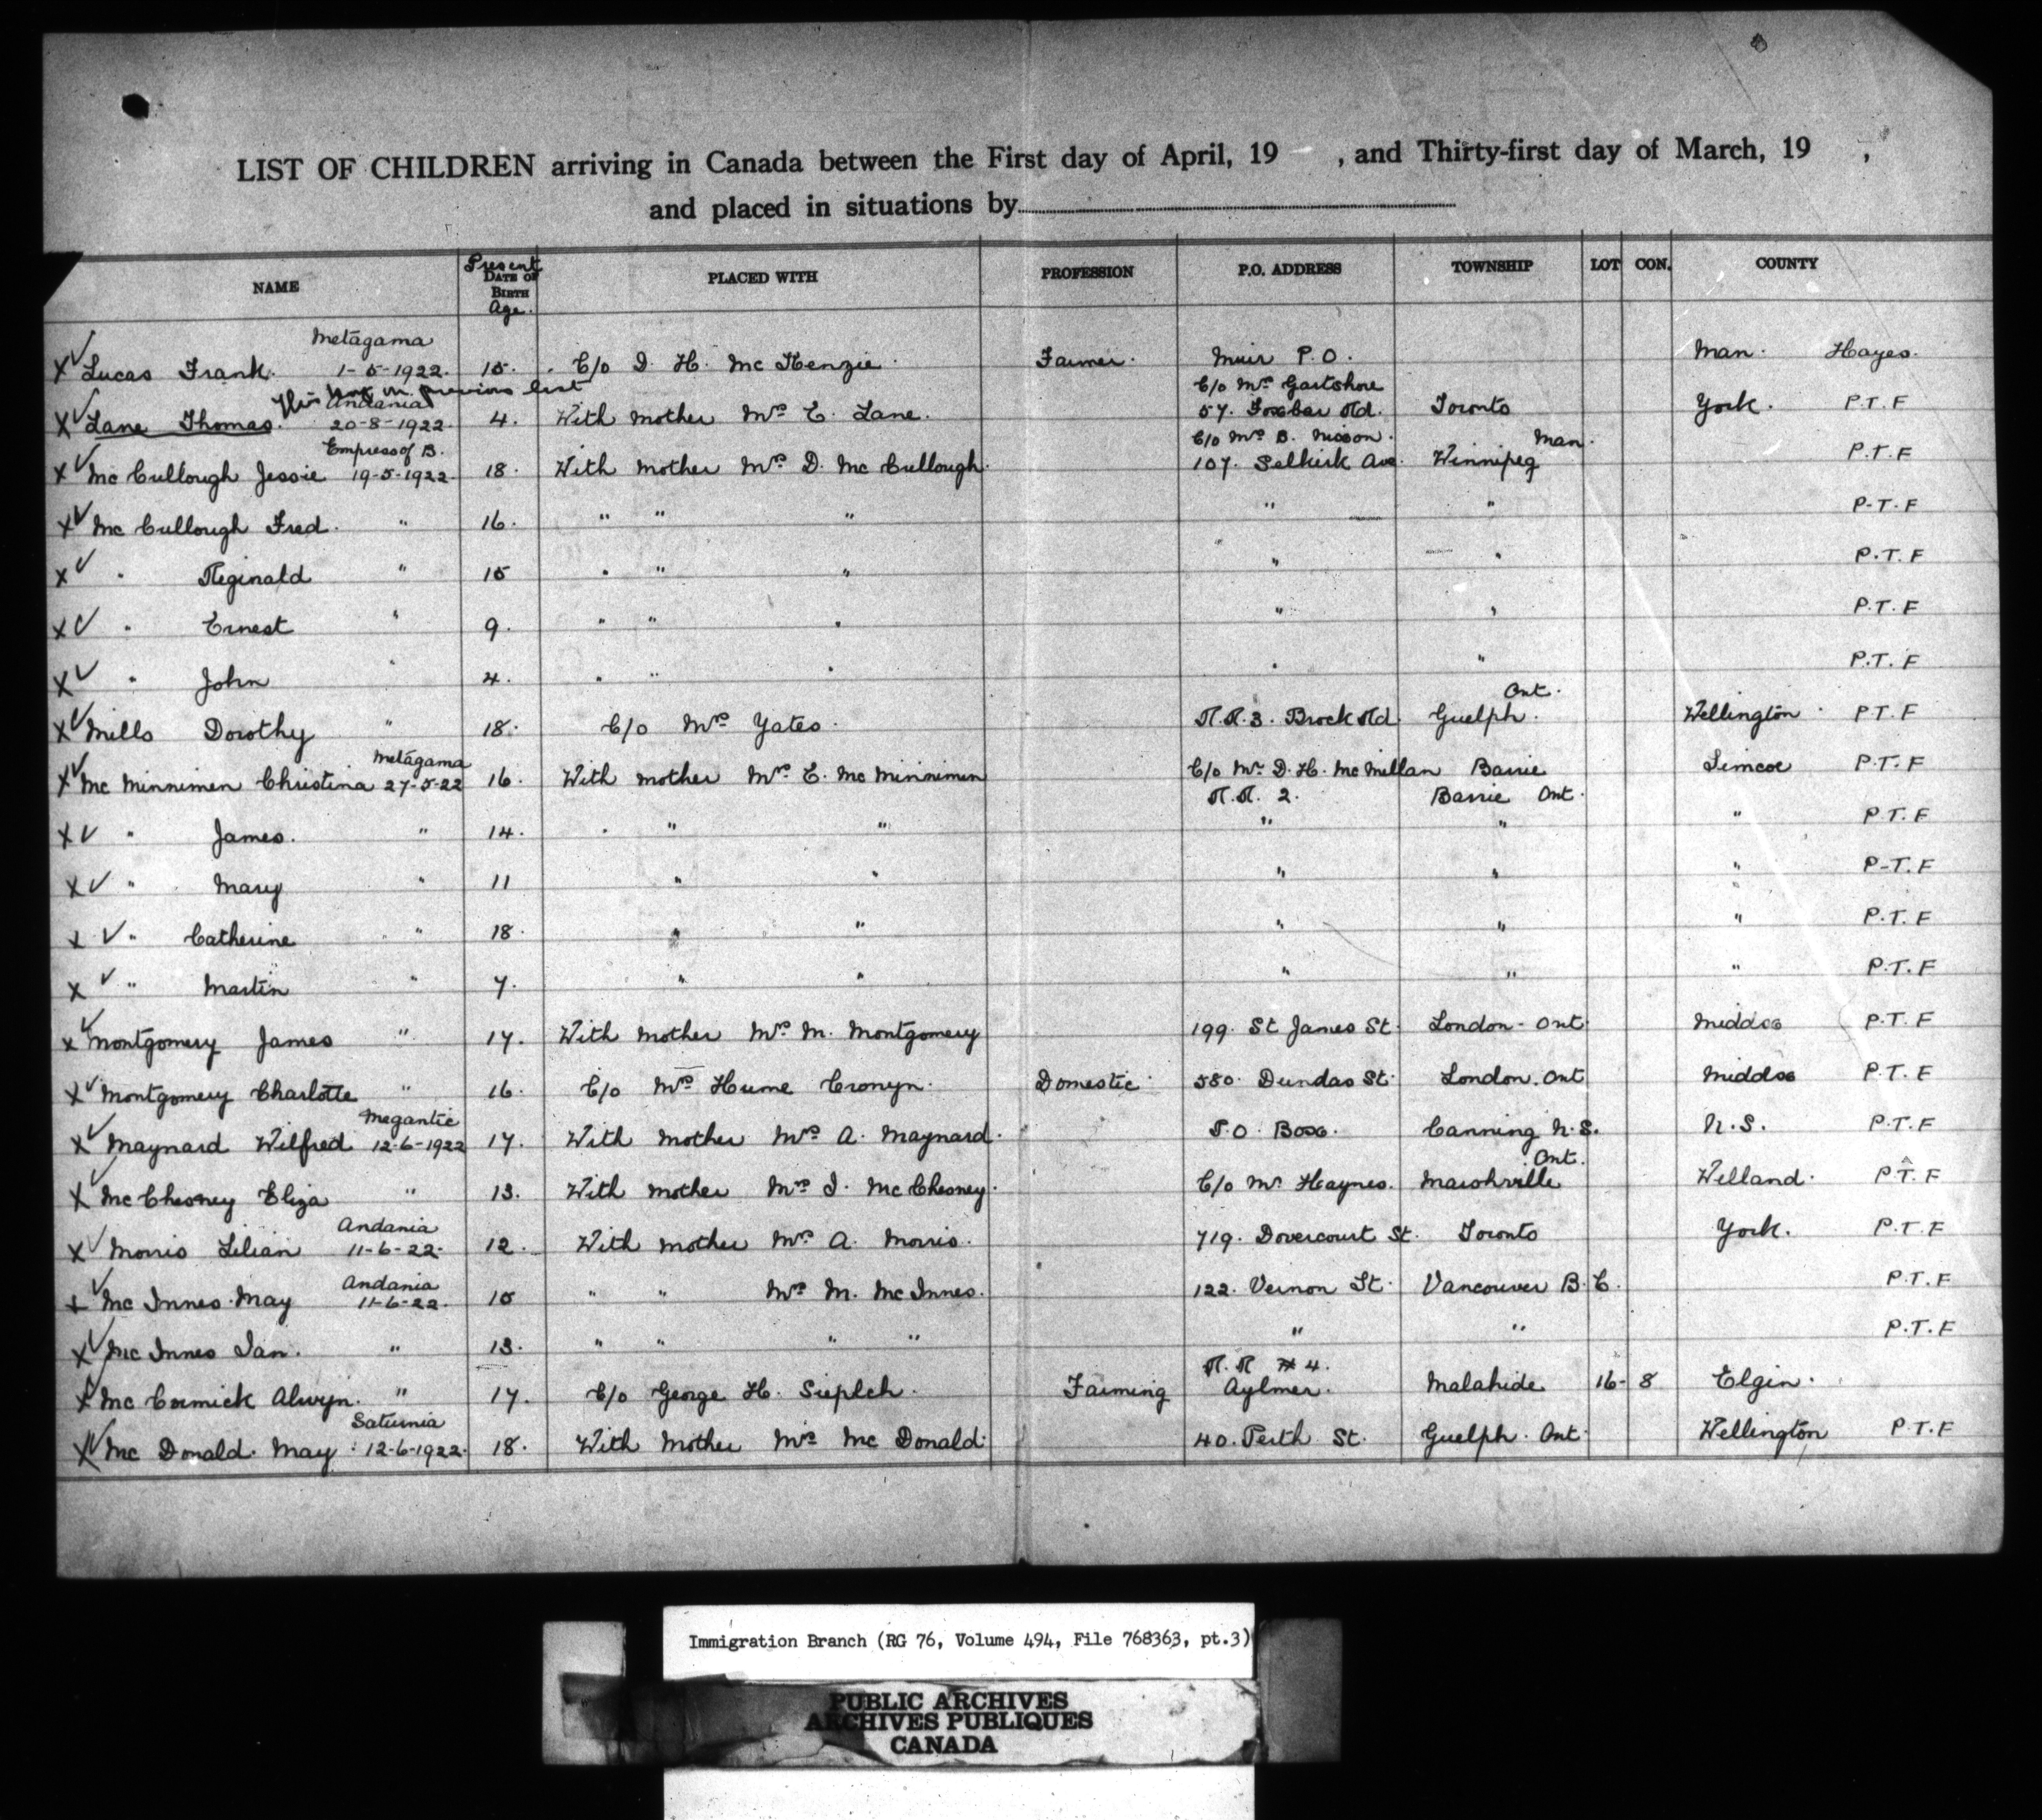 LIST OF CHILDREN arriving in Canada between the First day of April, 19 , and Thirty-first day of March, 19 ,
and placed in situations by
NAME Present DATE OF BIRTH Age. PLACED WITH PROFESSION P.O. ADDRESS TOWNSHIP LOT CON. COUNTY
Metagama
X✓ Lucas Frank. 1-5-1922. 15. C/o D. H. Mc Kenzie. Farmer. Muir P.O. Man. Hayes.
This in previous list
Andania C/o Mrs Gartshore
X✓ Lane Thomas. 20-8-1922. 4. With mother Mrs E. Lane. 57. Foxbar Rd. Toronto York. P.T.F
Empress of B. C/o Mrs B. Nixon. Man.
X✓ Mc Cullough Jessie 19-5-1922. 18. With mother Mrs D. Mc Cullough. 107. Selkirk Ave. Winnipeg P.T.F
X✓ Mc Cullough Fred. " 16. " " " " " P-T.F
X✓ " Reginald " 15 " " " " " P.T.F
X✓ " Ernest " 9. " " " " " P.T.F
X✓ " John " 4. " " " " " P.T.F
Ont.
X✓ Mills Dorothy " 18. C/o Mrs Yates. R.R.3. Brock Rd Guelph. Wellington P.T.F
Metagama
X✓ Mc Minnimen Christina 27-5-22 16. With mother Mrs E. Mc Minnimen C/o Mr D.H. McMillan Barrie Simcoe P.T.F
R.R. 2. Barrie Ont.
X✓ " James. " 14. " " " " " " P.T.F
X✓ " Mary " 11 " " " " " P-T.F
X✓ " Catherine " 18. " " " " " P.T.F
X✓ " Martin " 7. " " " " " P.T.F
X✓ Montgomery James " 17. With mother Mrs M. Montgomery 199. St James St. London - Ont Middsx P.T.F
X✓ Montgomery Charlotte " 16. C/o Mrs Hume Cronyn. Domestic 580. Dundas St. London. Ont Middsx P.T.F
Megantic
X✓ Maynard Wilfred 12-6-1922 17. With mother Mrs A. Maynard. P.O. Box. Canning N.S. N.S. P.T.F
Ont.
X✓ Mc Chesney Eliza " 13. With mother Mrs I. Mc Chesney. C/o Mr Haynes. Marshville Welland. P.T.F
Andania
X✓ Morris Lilian 11-6-22. 12. With mother Mrs A. Morris. 719. Dovercourt St. Toronto York. P.T.F
Andania
X✓ Mc Innes May 11-6-22. 15 " " Mrs M. McInnes. 122. Vernon St. Vancouver B.C. P.T.F
X✓ Mc Innes Ian. " 13. " " " " " " P.T.F
R.R #4.
X✓ Mc Cormick Alwyn. " 17. C/o George H. Farming Aylmer. Malahide 16- 8 Elgin.
Saturnia
X✓ Mc Donald. May. 12-6-1922. 18. With Mother Mrs Mc Donald. 40. Perth St. Guelph. Ont. Wellington P.T.F
Immigration Branch (RG 76, Volume 494, File 768363, pt.3)
PUBLIC ARCHIVES
ARCHIVES PUBLIQUES
CANADA